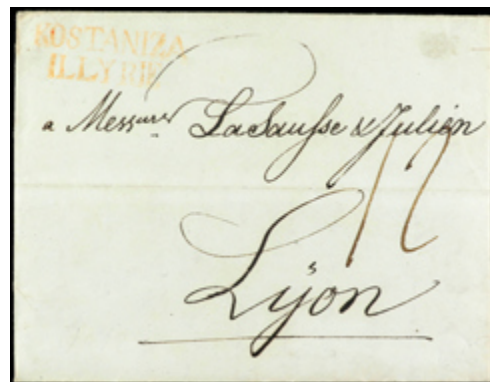 KOSTANIZA
ILLYRIE
a Messieurs LaSausse & Julien
12
Lÿon